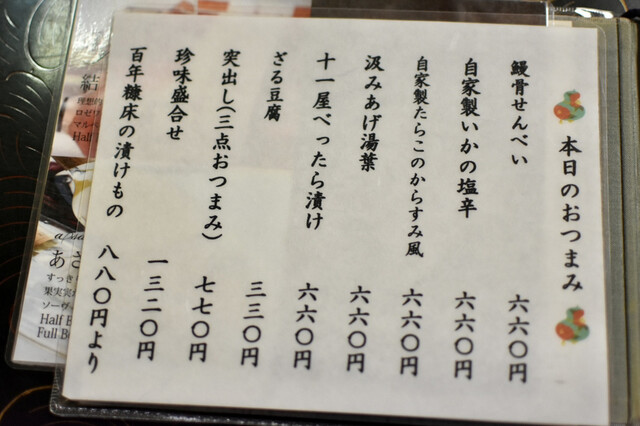 本日のおつまみ
鰻骨せんべい 六六〇円
自家製いかの塩辛 六六〇円
自家製たらこのからすみ風 六六〇円
汲みあげ湯葉 六六〇円
十一屋べったら漬け 六六〇円
ざる豆腐 三三〇円
突出し(三点おつまみ) 七七〇円
珍味盛合せ 一三二〇円
百年糠床の漬けもの 八八〇円より
理想的
ロゼワ
マルベ
Half
あさ
すっき
果実実
ソーヴ
Half B
Full Bo